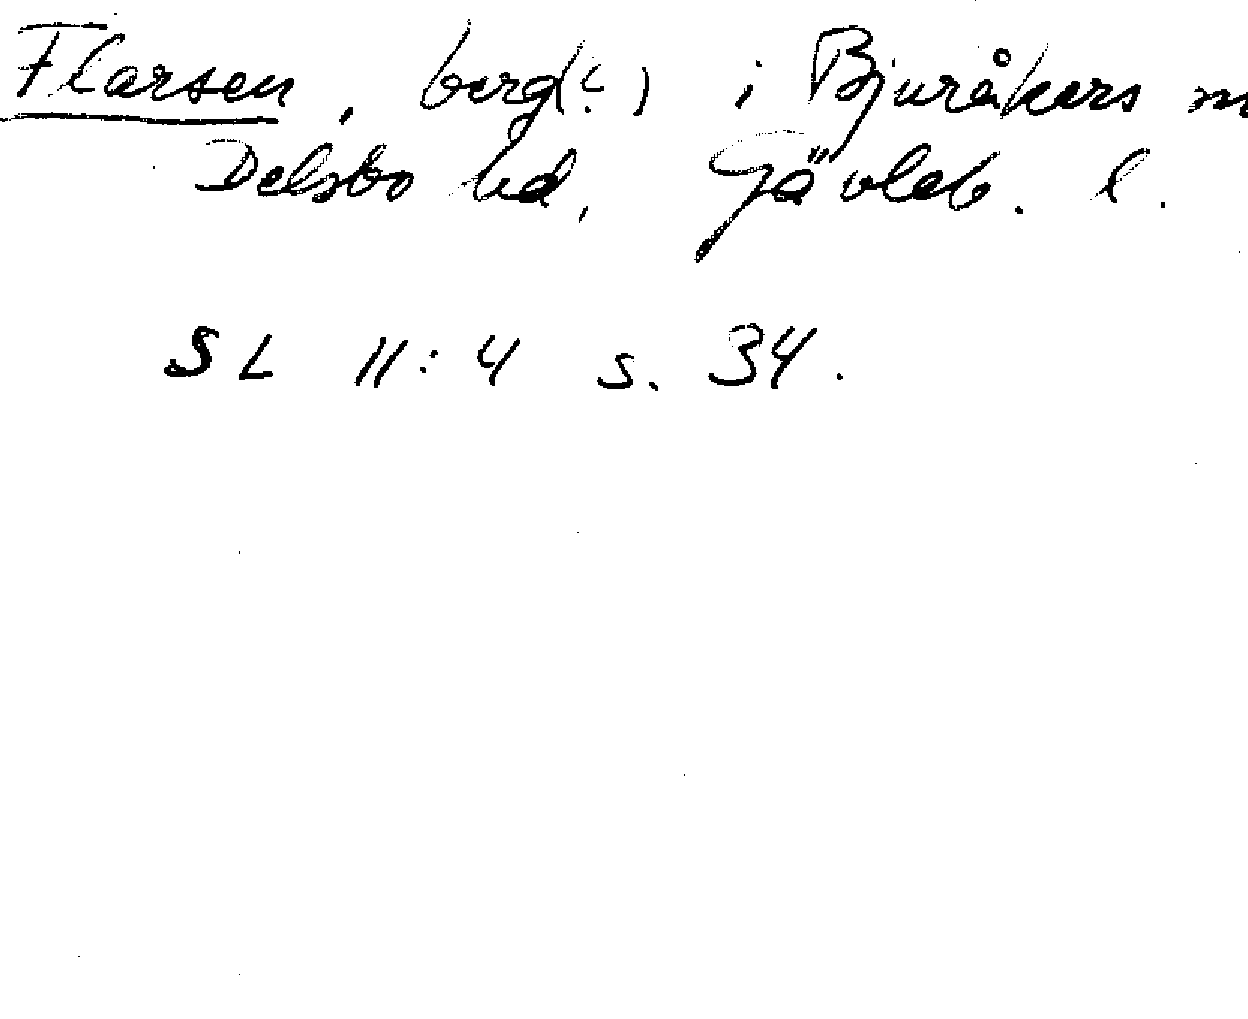 Flarsen, berg(?) i Bjuråkers
Delsbo hd, Gävleb. l.
SL 11:4 s. 34.